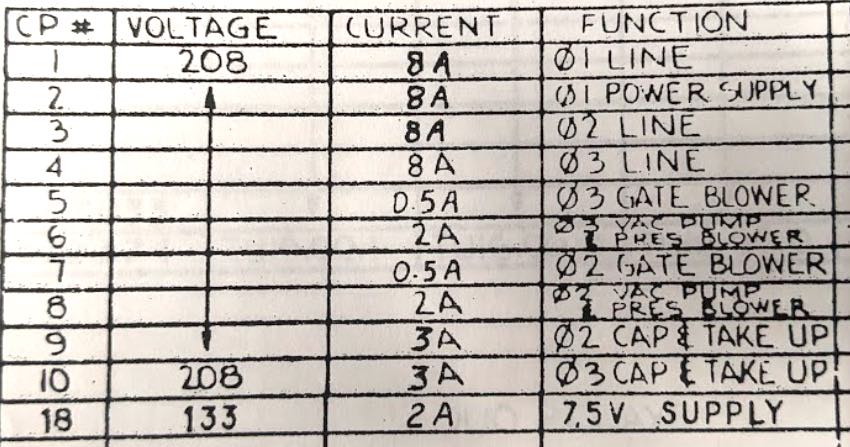 CP # VOLTAGE CURRENT FUNCTION
1 208 8A Ø1 LINE
2 8A Ø1 POWER SUPPLY
3 8A Ø2 LINE
4 8A Ø3 LINE
5 0.5A Ø3 GATE BLOWER
6 2A Ø3 VAC PUMP
& PRES BLOWER
7 0.5A Ø2 GATE BLOWER
8 2A Ø2 VAC PUMP
& PRES BLOWER
9 3A Ø2 CAP & TAKE UP
10 208 3A Ø3 CAP & TAKE UP
18 133 2A 7.5V SUPPLY